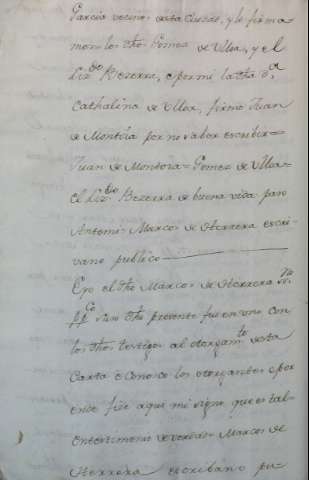 Garcia vecinos desta Ciudad, y lo firma
mon los dho Gomez de Ulloa, y el
Liz.do Bezerra, e por mi la dha D.a
Cathalina de Ulloa, firmo Juan
de Montoia por no saber escribir=
Juan de Montoia= Gomez de Ulloa=
el Liz.do Bezerra de buena vida paso
Antemi= Marcos de Herrera escri-
vano publico
E yo el dho Marcos de Herrera
pp.co suso dho presente fui en uno con
los dhos testigos al otorgam.to desta
Carta e Conosco los otorgantes e por
ende fize aqui mi signo que es tal=
en testimonio de verdad= Marcos de
Herrera escribano pu-